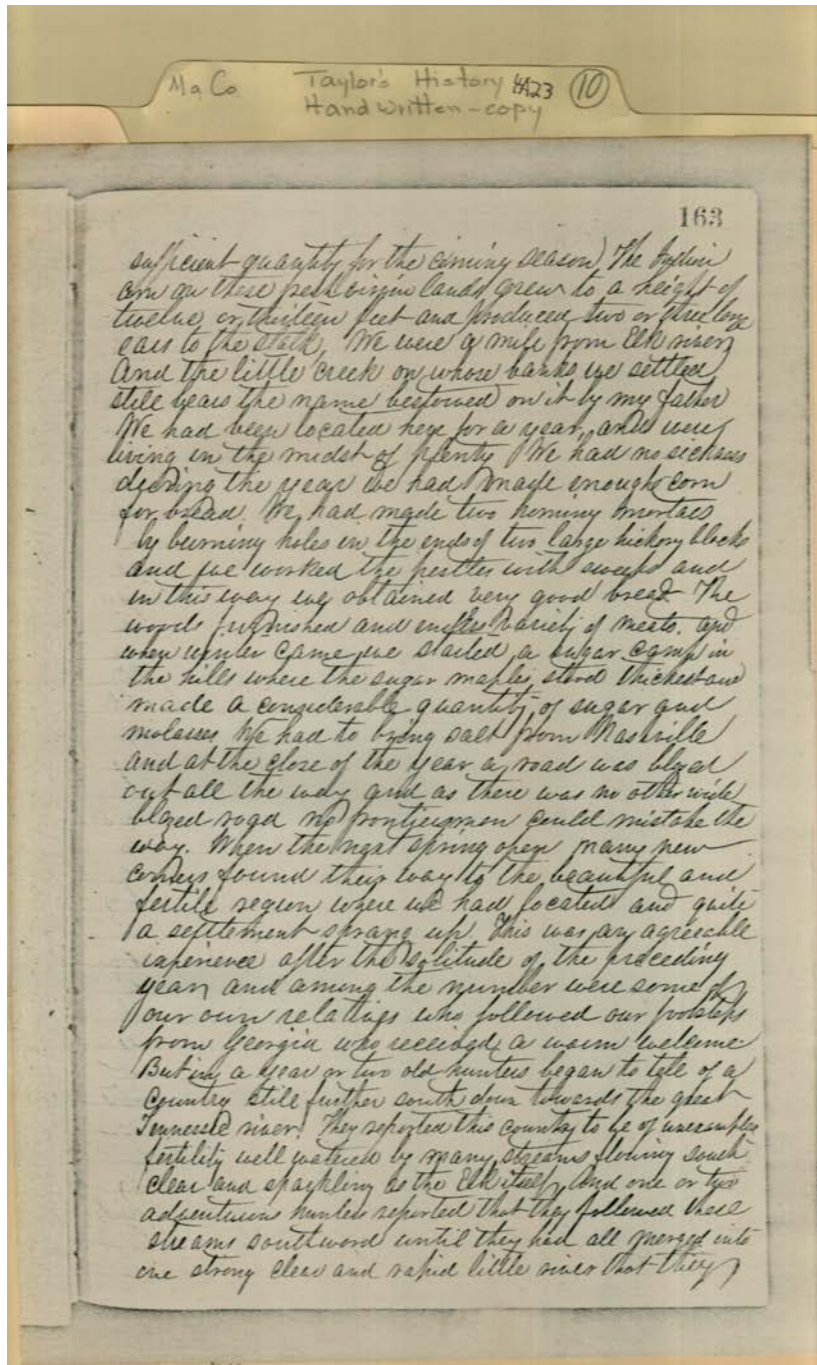 Ma Co Taylor's History 4A23 (10)
Handwritten-copy
163
sufficient quantity for the coming season) The Indian
corn on these fresh virgin lands grew to a height of
twelve or thirteen feet and produced two or three long
ears to the stalk. We were a mile from Elk river
And the little creek on whose banks we settled
still bears the name bestowed on it by my father
We had been located here for a year, and were
living in the midst of plenty We had no sickness
during the year we had made enough corn
for bread. We had made two hominy mortars
by burning holes in the ends of two large hickory blocks
and we worked the pestles with sweeps and
in this way we obtained very good bread The
woods furnished and endless variety of meats. and
when winter came we started a sugar camp in
the hills where the sugar maples stood thickest and
made a considerable quantity of sugar and
molasses We had to bring salt from Nashville
and at the close of the year a road was blazed
out all the way and as there was no other wide
blazed road no frontierman could mistake the
way. When the next spring open many new
comers found their way to the beautiful and
fertile region where we had located and quite
a settlement sprang up. This was an agreeable
experience after the solitude of the preceding
year, and among the number were some of
our own relatives who followed our footsteps
from Georgia who received a warm welcome
But in a year or two old hunters began to tell of a
country still further south down towards the great
Tennessee river. They reported this country to be of unexampled
fertility well watered by many streams flowing south
clear and sparkling as the Elk itself, And one or two
adventurous hunters reported that they followed these
streams southword until they had all merged into
one strong clear and rapid little river that they